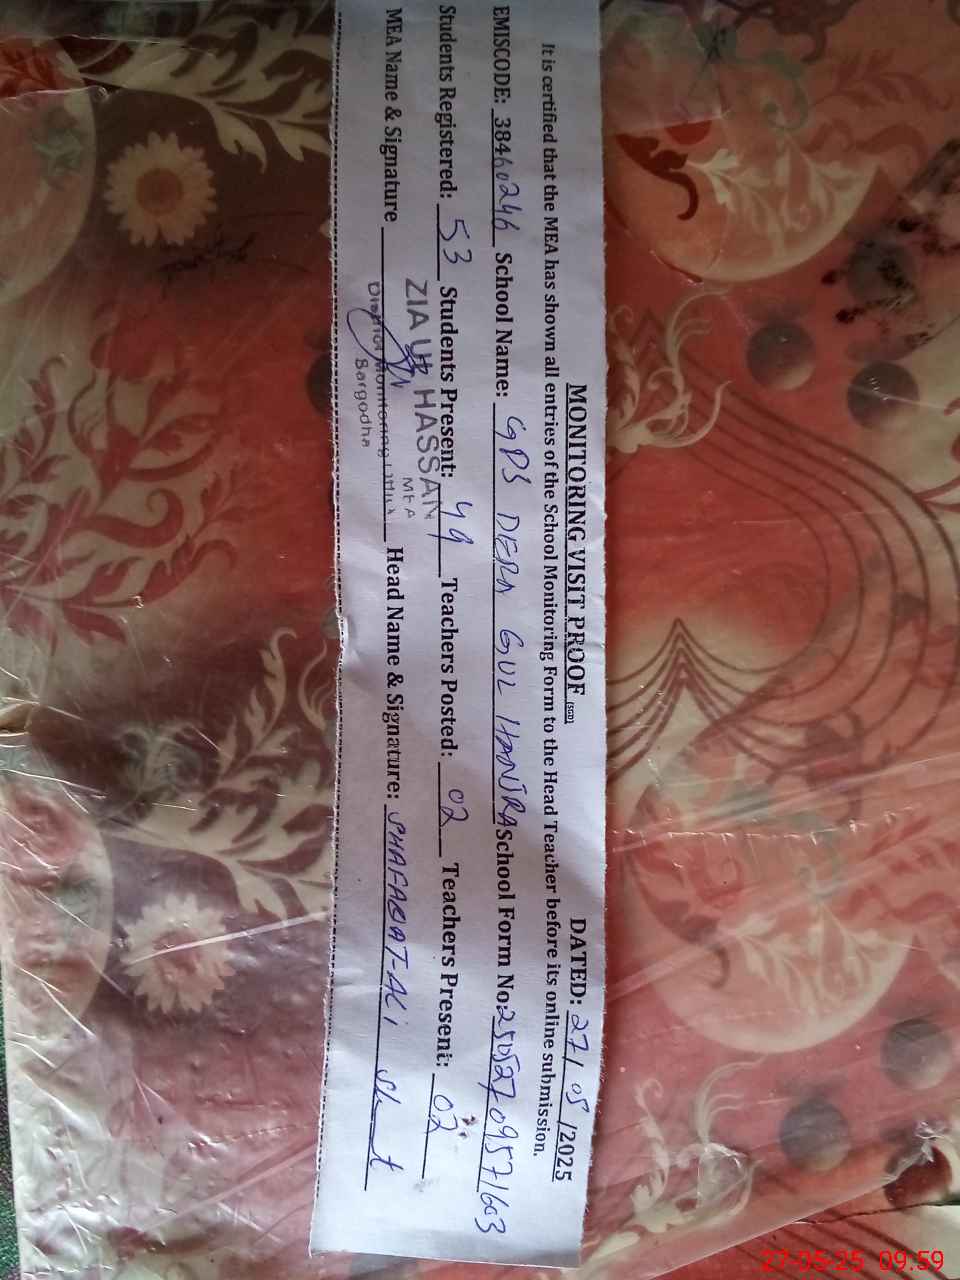 MONITORING VISIT PROOF (SGD) DATED: 27/05/2025
It is certified that the MEA has shown all entries of the School Monitoring Form to the Head Teacher before its online submission.
EMISCODE: 38460246 School Name: GPS DERA GUL HANJRA School Form No: 250527095716603
Students Registered: 53 Students Present: 49 Teachers Posted: 02 Teachers Present: 02
ZIA UL HASSAN
MEA
MEA Name & Signature Head Name & Signature: SHAFAQAT-ALI
District Monitoring Office
Sargodha
27-05-25 09:59